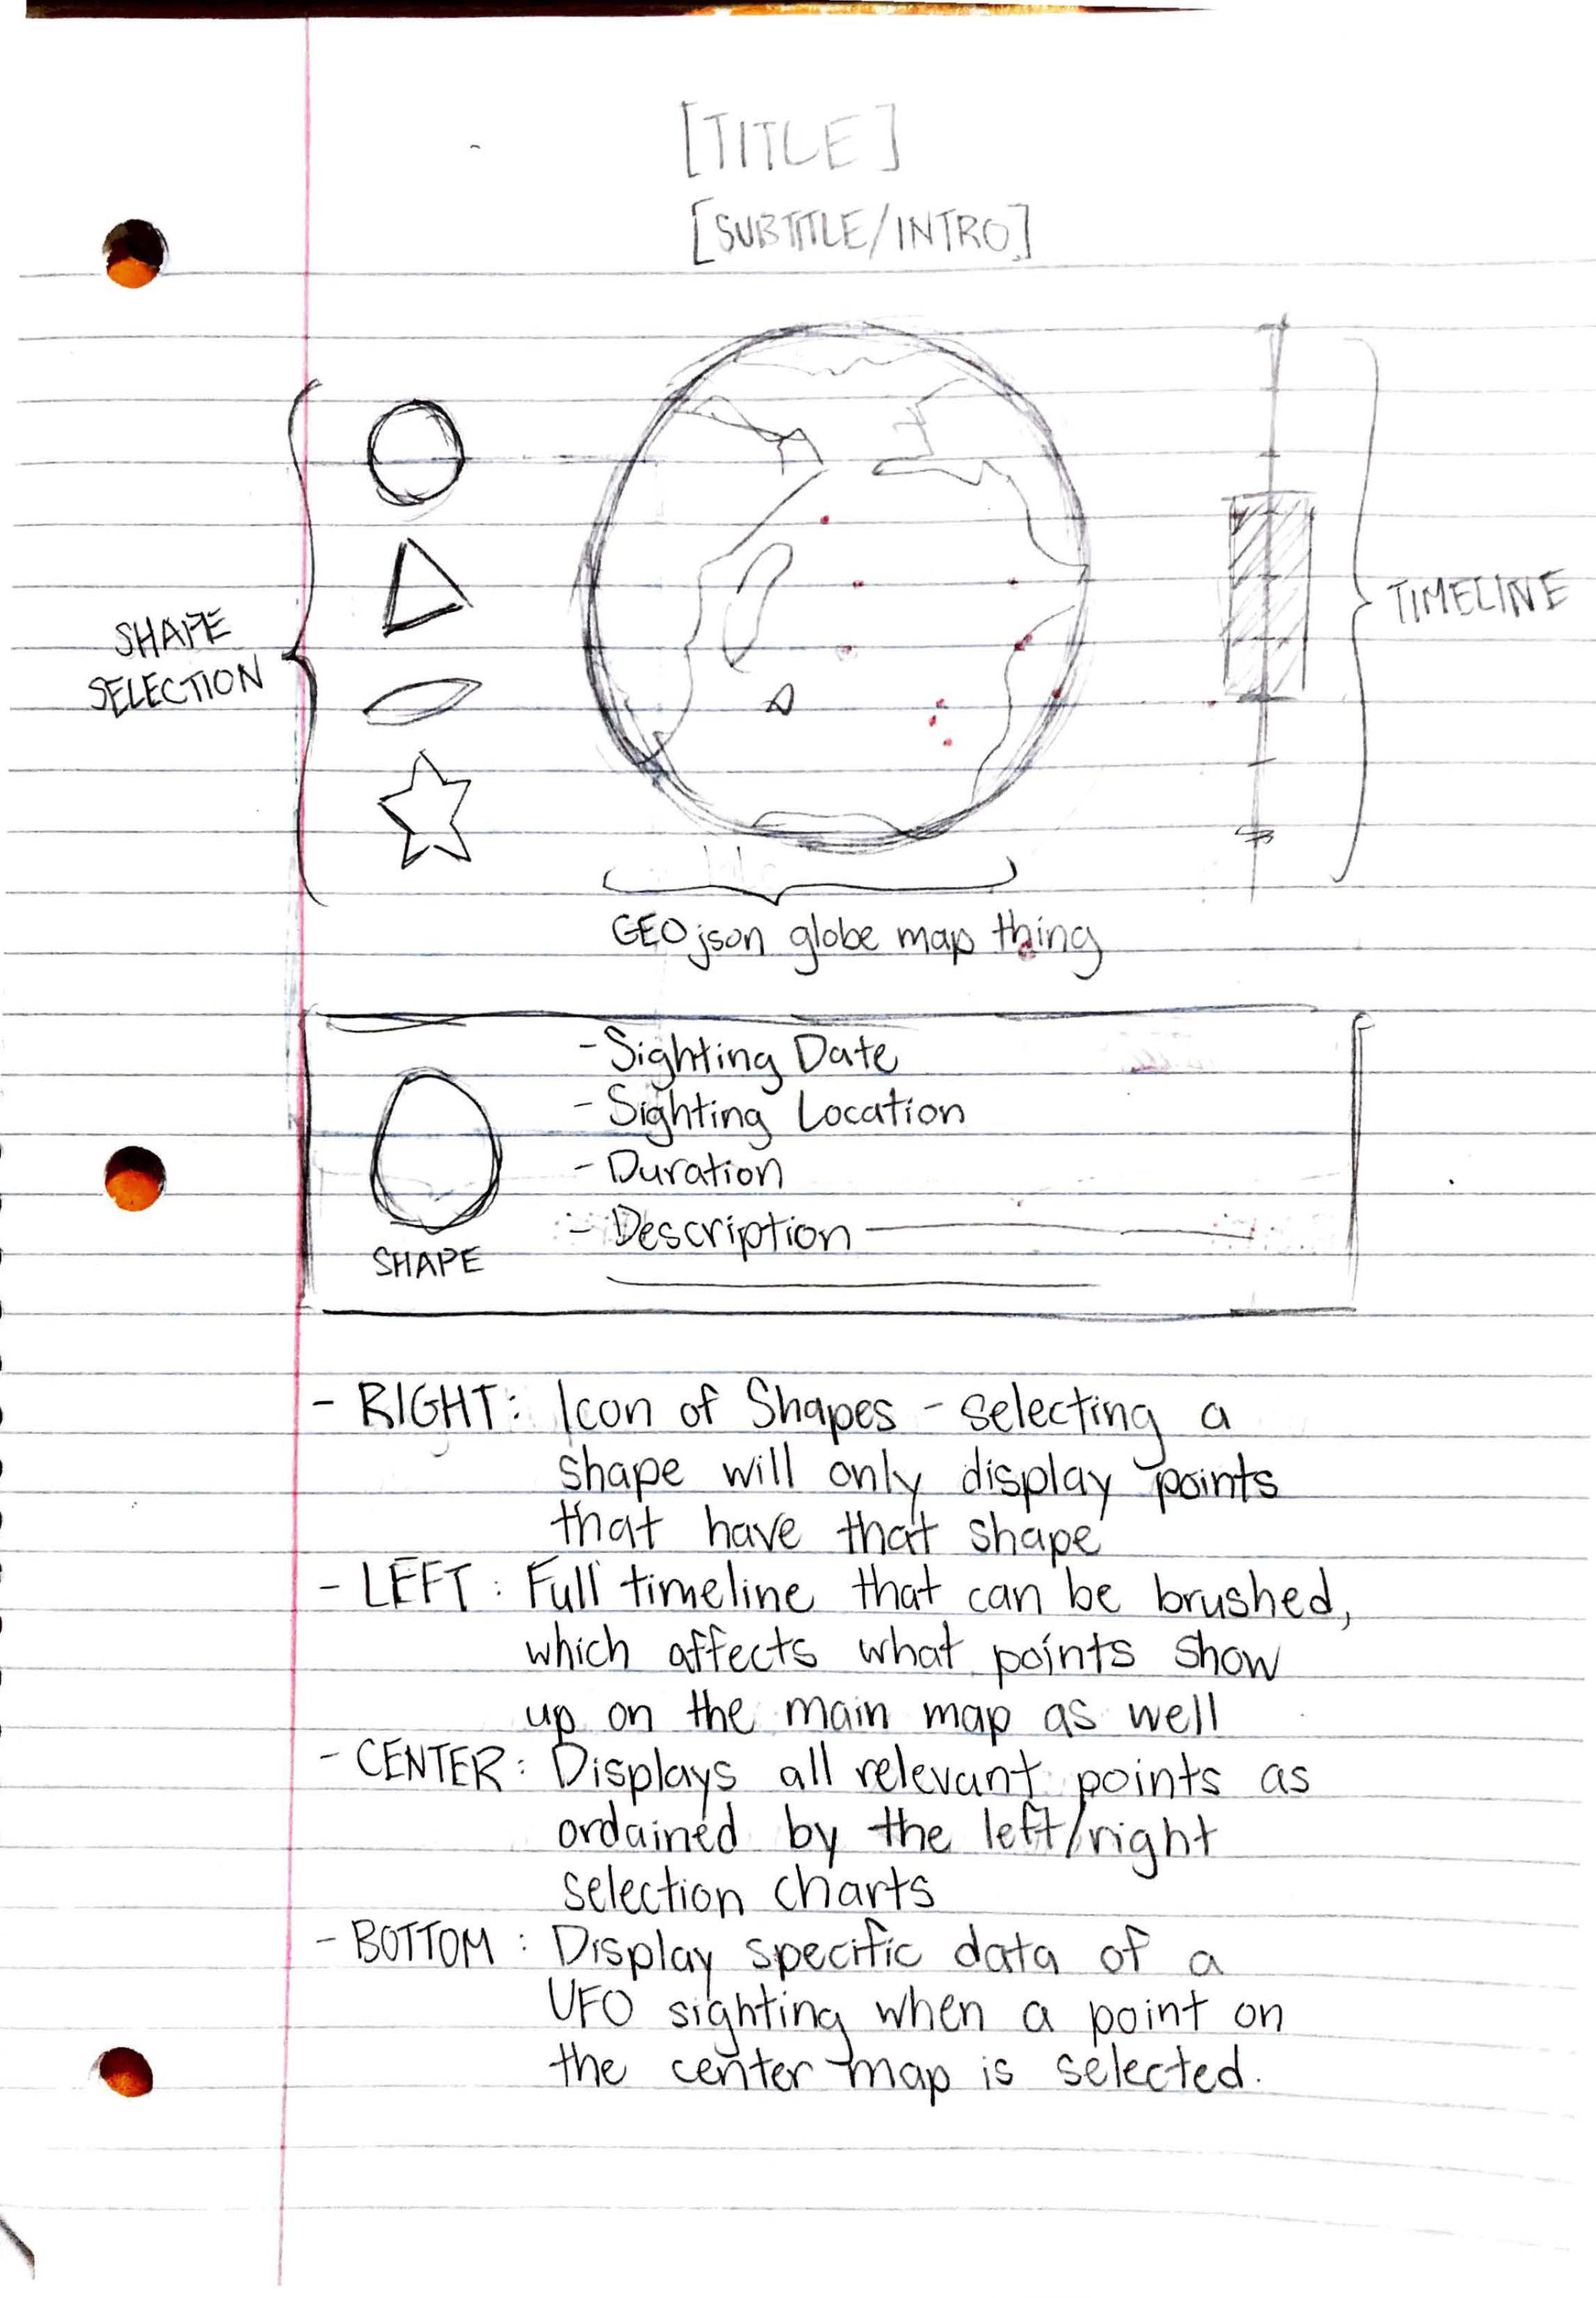 [TITLE]
[SUBTITLE/INTRO]
SHAPE
SELECTION
TIMELINE
GEOjson globe map thing
- Sighting Date
- Sighting Location
- Duration
- Description
SHAPE
- RIGHT: Icon of Shapes - selecting a
shape will only display points
that have that shape
- LEFT: Full timeline that can be brushed,
which affects what points show
up on the main map as well
- CENTER: Displays all relevant points as
ordained by the left/right
selection charts
- BOTTOM: Display specific data of a
UFO sighting when a point on
the center map is selected.